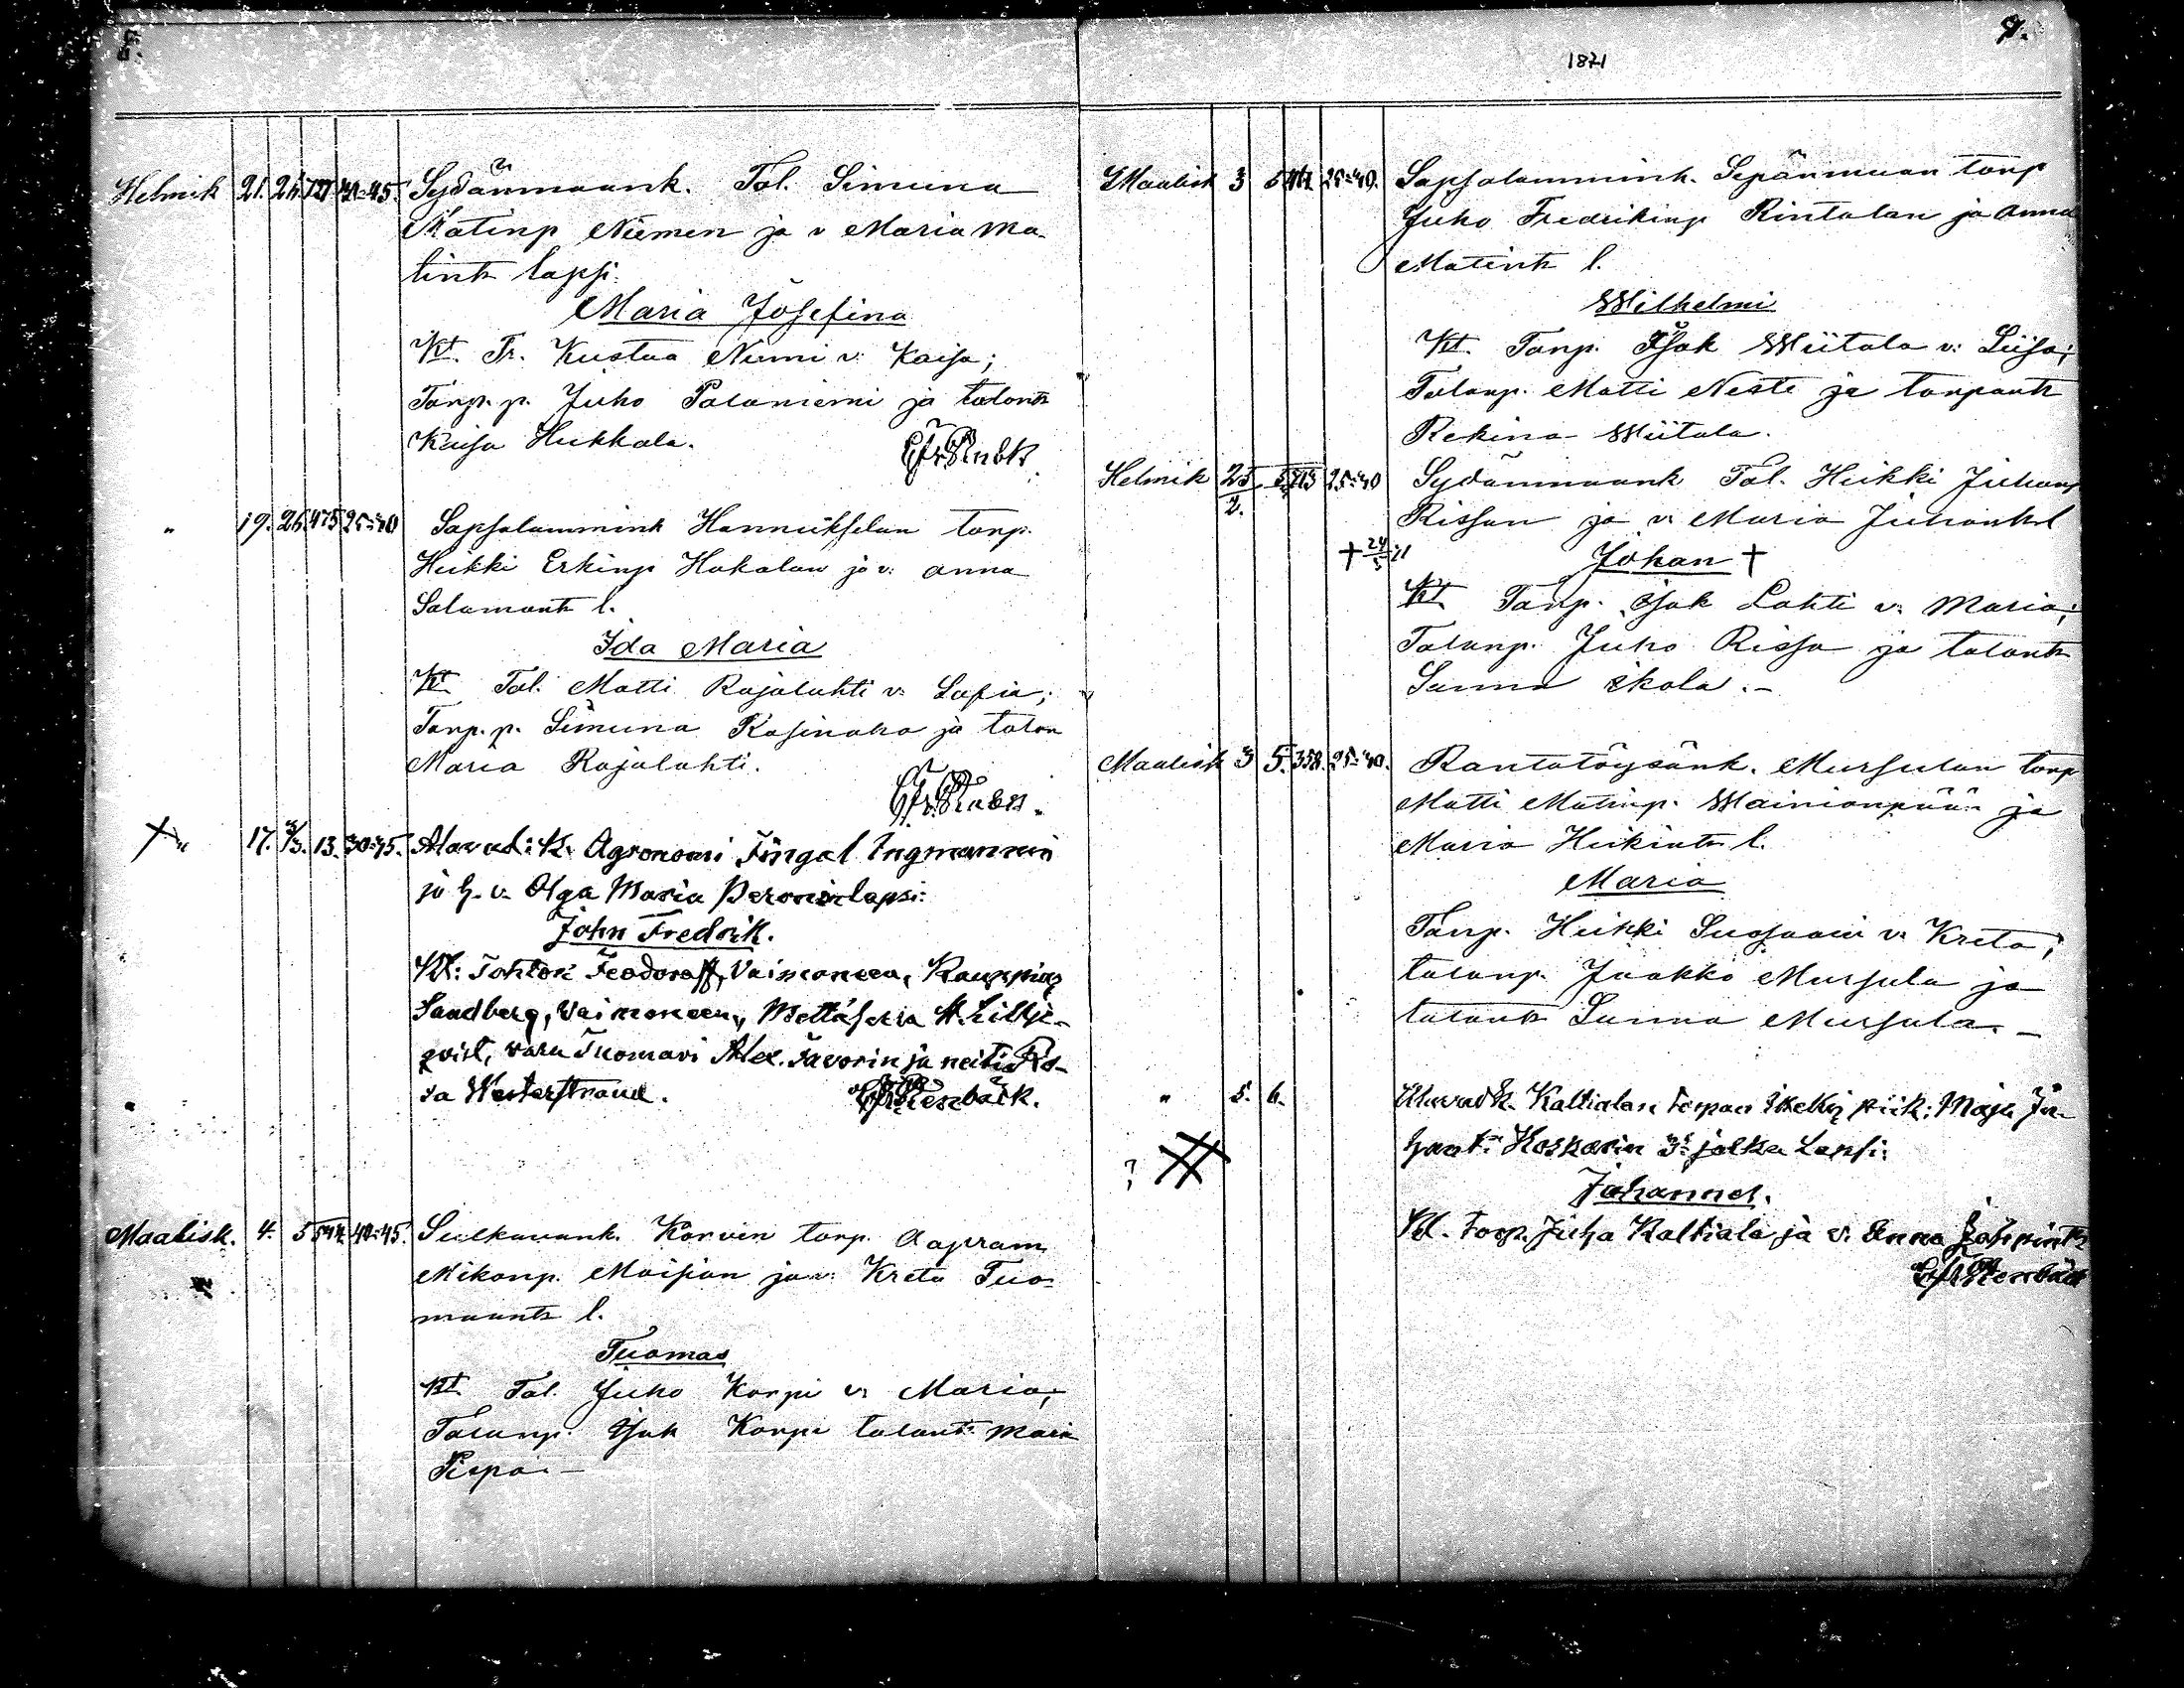 1871
9.
Helmik 21. 26. 727 40-45. Sydänmaank. Tal. Simuna
Matinp Niemen ja v Maria Ma-
tintr lapsi.
Maria Josefina
Kt. Tr. Kustaa Niemi v: Kaisa;
Torp. p. Juho Paloniemi ja talontr
Kaisa Hukkala.
" 19. 26. 475 25-40 Sapsalammink Hannukselan torp.
Heikki Erkinp Hakalan ja v: Anna
Salamontr l.
Ida Maria
Kt. Tal. Matti Rajalahti v: Sofia;
Torp. p. Simuna Kasinaho ja talon
Maria Rajalahti.
" 17. 5/3. 13. 30-45. Alavud: K. Agronomi Fingal Ingmannin
ja h. v. Olga Maria lapsi:
John Fredrik.
Kt: Tohtori Feodoroff, Vaimoneen, Kauppias
Sandberg, Vaimoneen, Mettäherra A. Lillje-
qvist, vara Tuomari Alex. Favorin ja neiti Ro-
sa Westerstrand.
Maalisk. 4. 5 544 40-45. Sulkavank. Korven torp. Aapram
Mikonp. Maisian ja v: Kreta Tuo-
maantr l.
Tuomas
Kt. Tal. Juho Korpi v: Maria;
Talonp. Isak Korpi talontr Maria
Maalisk 3 5 25-40. Sapsalammink. Sepänmaan torp
Juho Fredrikinp Rintalan ja Anna
Matintr l.
Wilhelmi
Kt. Torp. Isak Wiitala v: Liisa;
Talonp. Matti Neste ja torpantr
Rekina Wiitala.
Helmik 25 5 713 25-40 Sydänmaank Tal. Heikki Juhanp
2. Rissan ja v: Maria Juhantr l
+ 24/5 71 Johan +
Kt. Torp. Isak Lahti v: Maria;
Talonp. Juho Rissa ja talontr
Sanna Ikola.-
Maalisk 3 5. 358. 25-40. Rantatöysänk. Mursulan torp
Matti Matinp. Wainionpään ja
Maria Heikintr l.
Maria
Torp. Heikki Sussaari v: Kreta;
talonp. Jaakko Mursula ja
talontr Sanna Mursula.-
" 5. 6. Alavud K. Kaltialan torpan piik: Maja Ju-
hant: Koskarin 3s jalka Lapsi:
?
Johannes.
Kt. Torp. Juha Kaltiala ja v: Anna